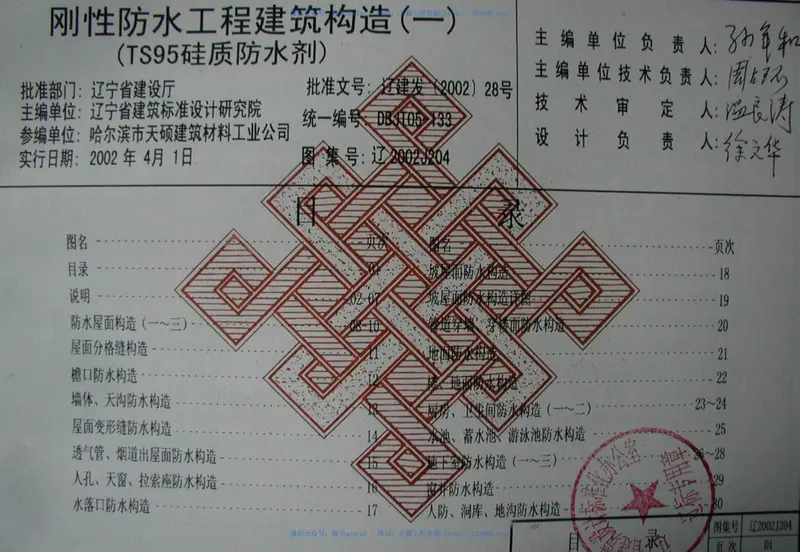 刚性防水工程建筑构造(一)
(TS95硅质防水剂)
批准部门: 辽宁省建设厅
主编单位: 辽宁省建筑标准设计研究院
参编单位: 哈尔滨市天硕建筑材料工业公司
实行日期: 2002 年 4月 1日
批准文号: 辽建发〔2002〕28号
统一编号 DBJT05-133
图 集 号: 辽 2002J204
主编单位负责人:
主编单位技术负责人:
技术审定人:
设计负责人:
目 录
图名 页次
目录 01
说明 02-07
防水屋面构造(一~三) 08-10
屋面分格缝构造 11
檐口防水构造 12
墙体、天沟防水构造 13
屋面变形缝防水构造 14
透气管、烟道出屋面防水构造 15
人孔、天窗、拉索座防水构造 16
水落口防水构造 17
图名 页次
坡屋面防水构造 18
坡屋面防水构造详图 19
管道穿墙、穿楼面防水构造 20
地面防水构造 21
楼、地面防水构造 22
厨房、卫生间防水构造(一~二) 23~24
水池、蓄水池、游泳池防水构造 25
地下室防水构造(一~三) 26~28
窗井防水构造 29
人防、洞库、地沟防水构造 30
目 录
图集号 辽2002J204
页 次 01